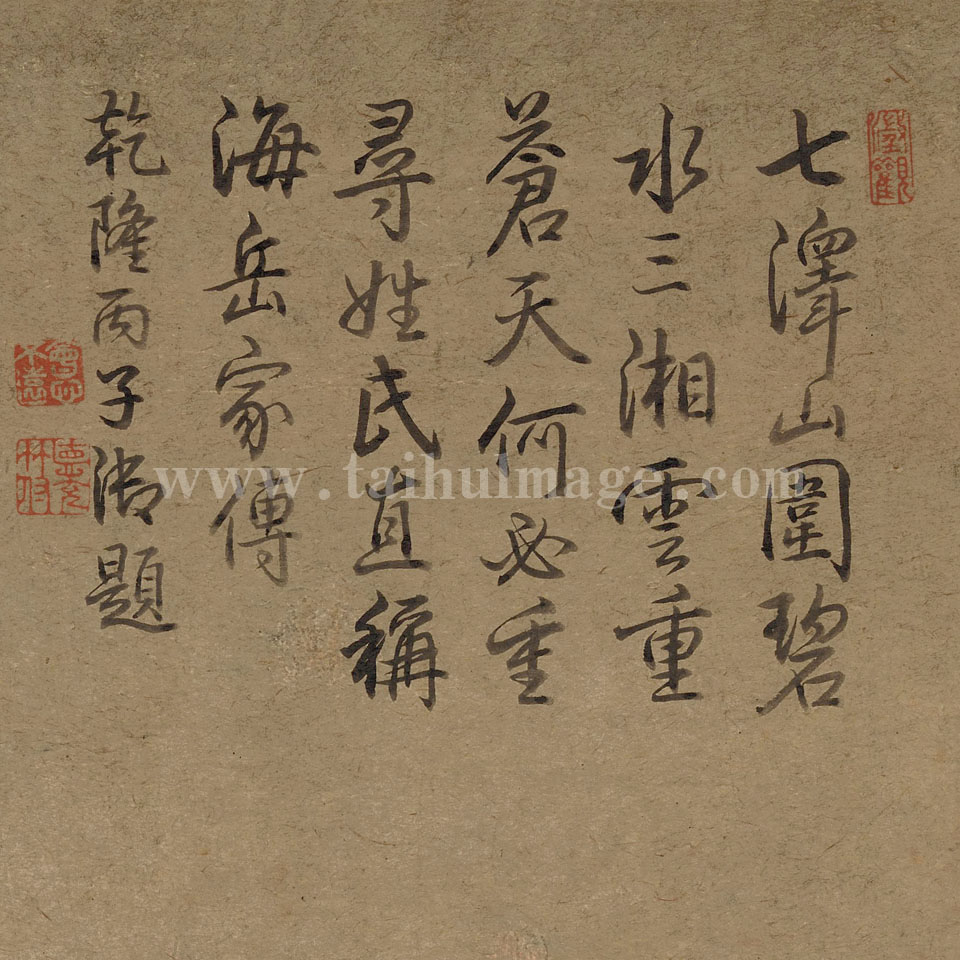 七澤山圍碧
水三湘雲重
蒼天何必重
尋姓氏直稱
海岳家傳
乾隆丙子御題
澂觀
www.taihuimage.com